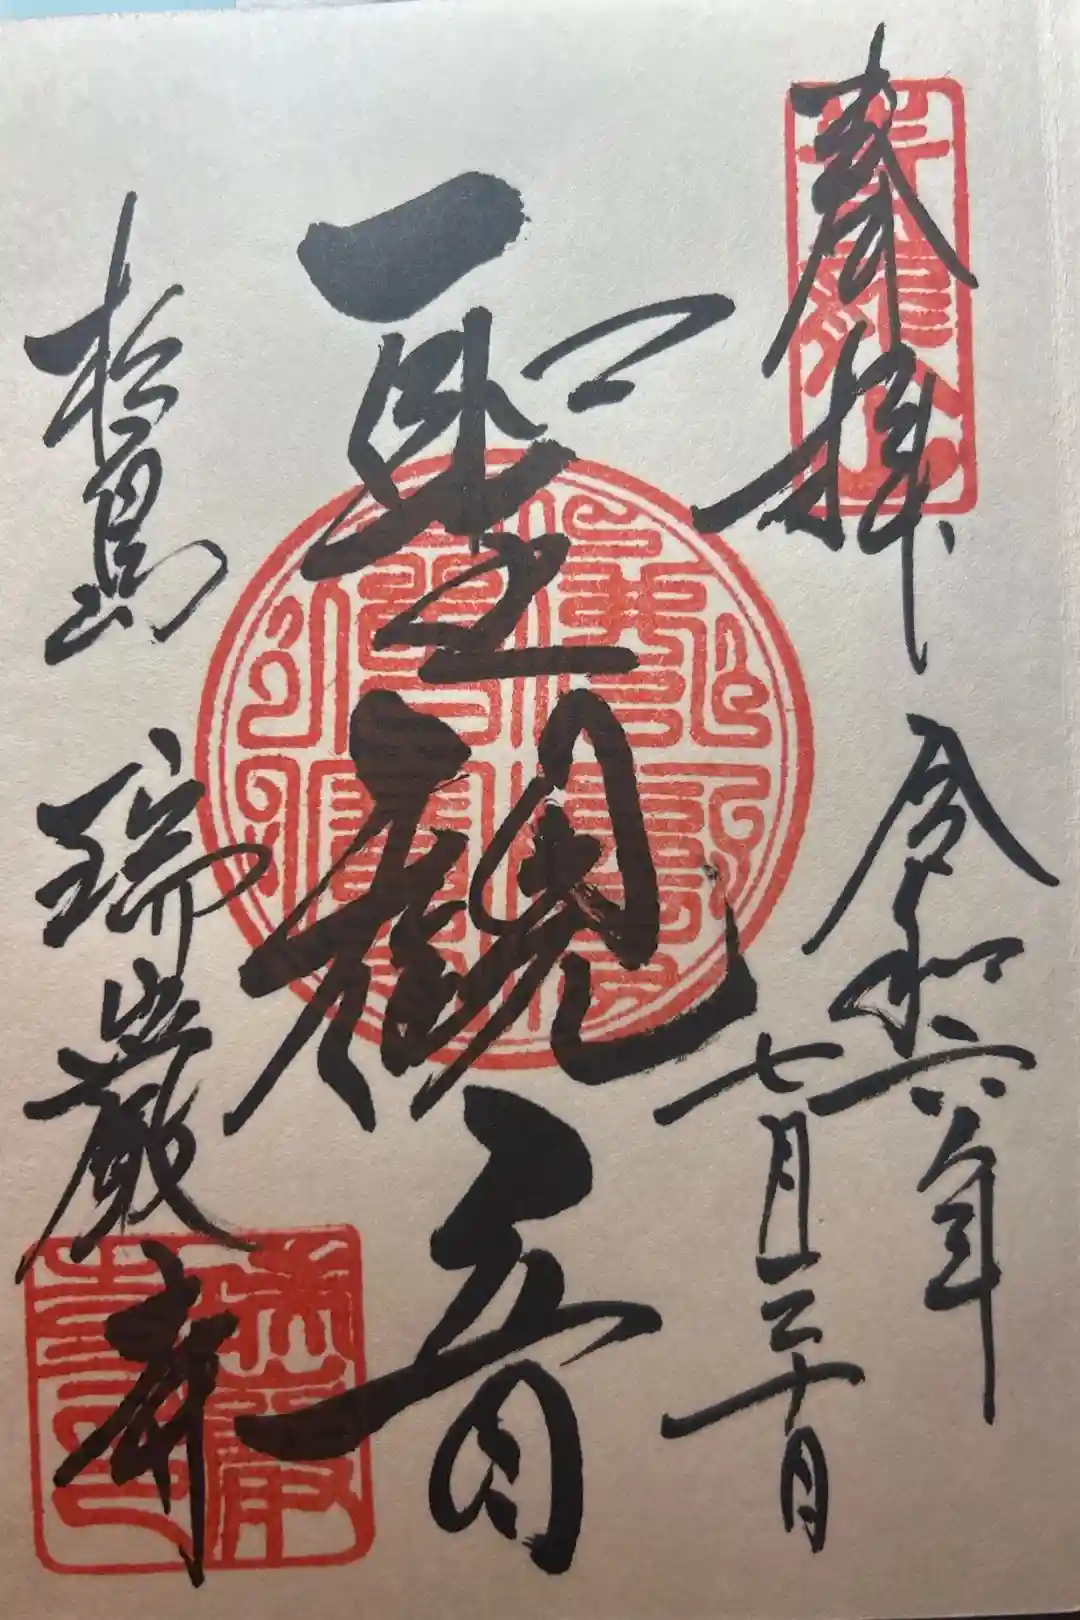 奉拝
令和六年
七月三十日
聖観音
松島
瑞巌寺